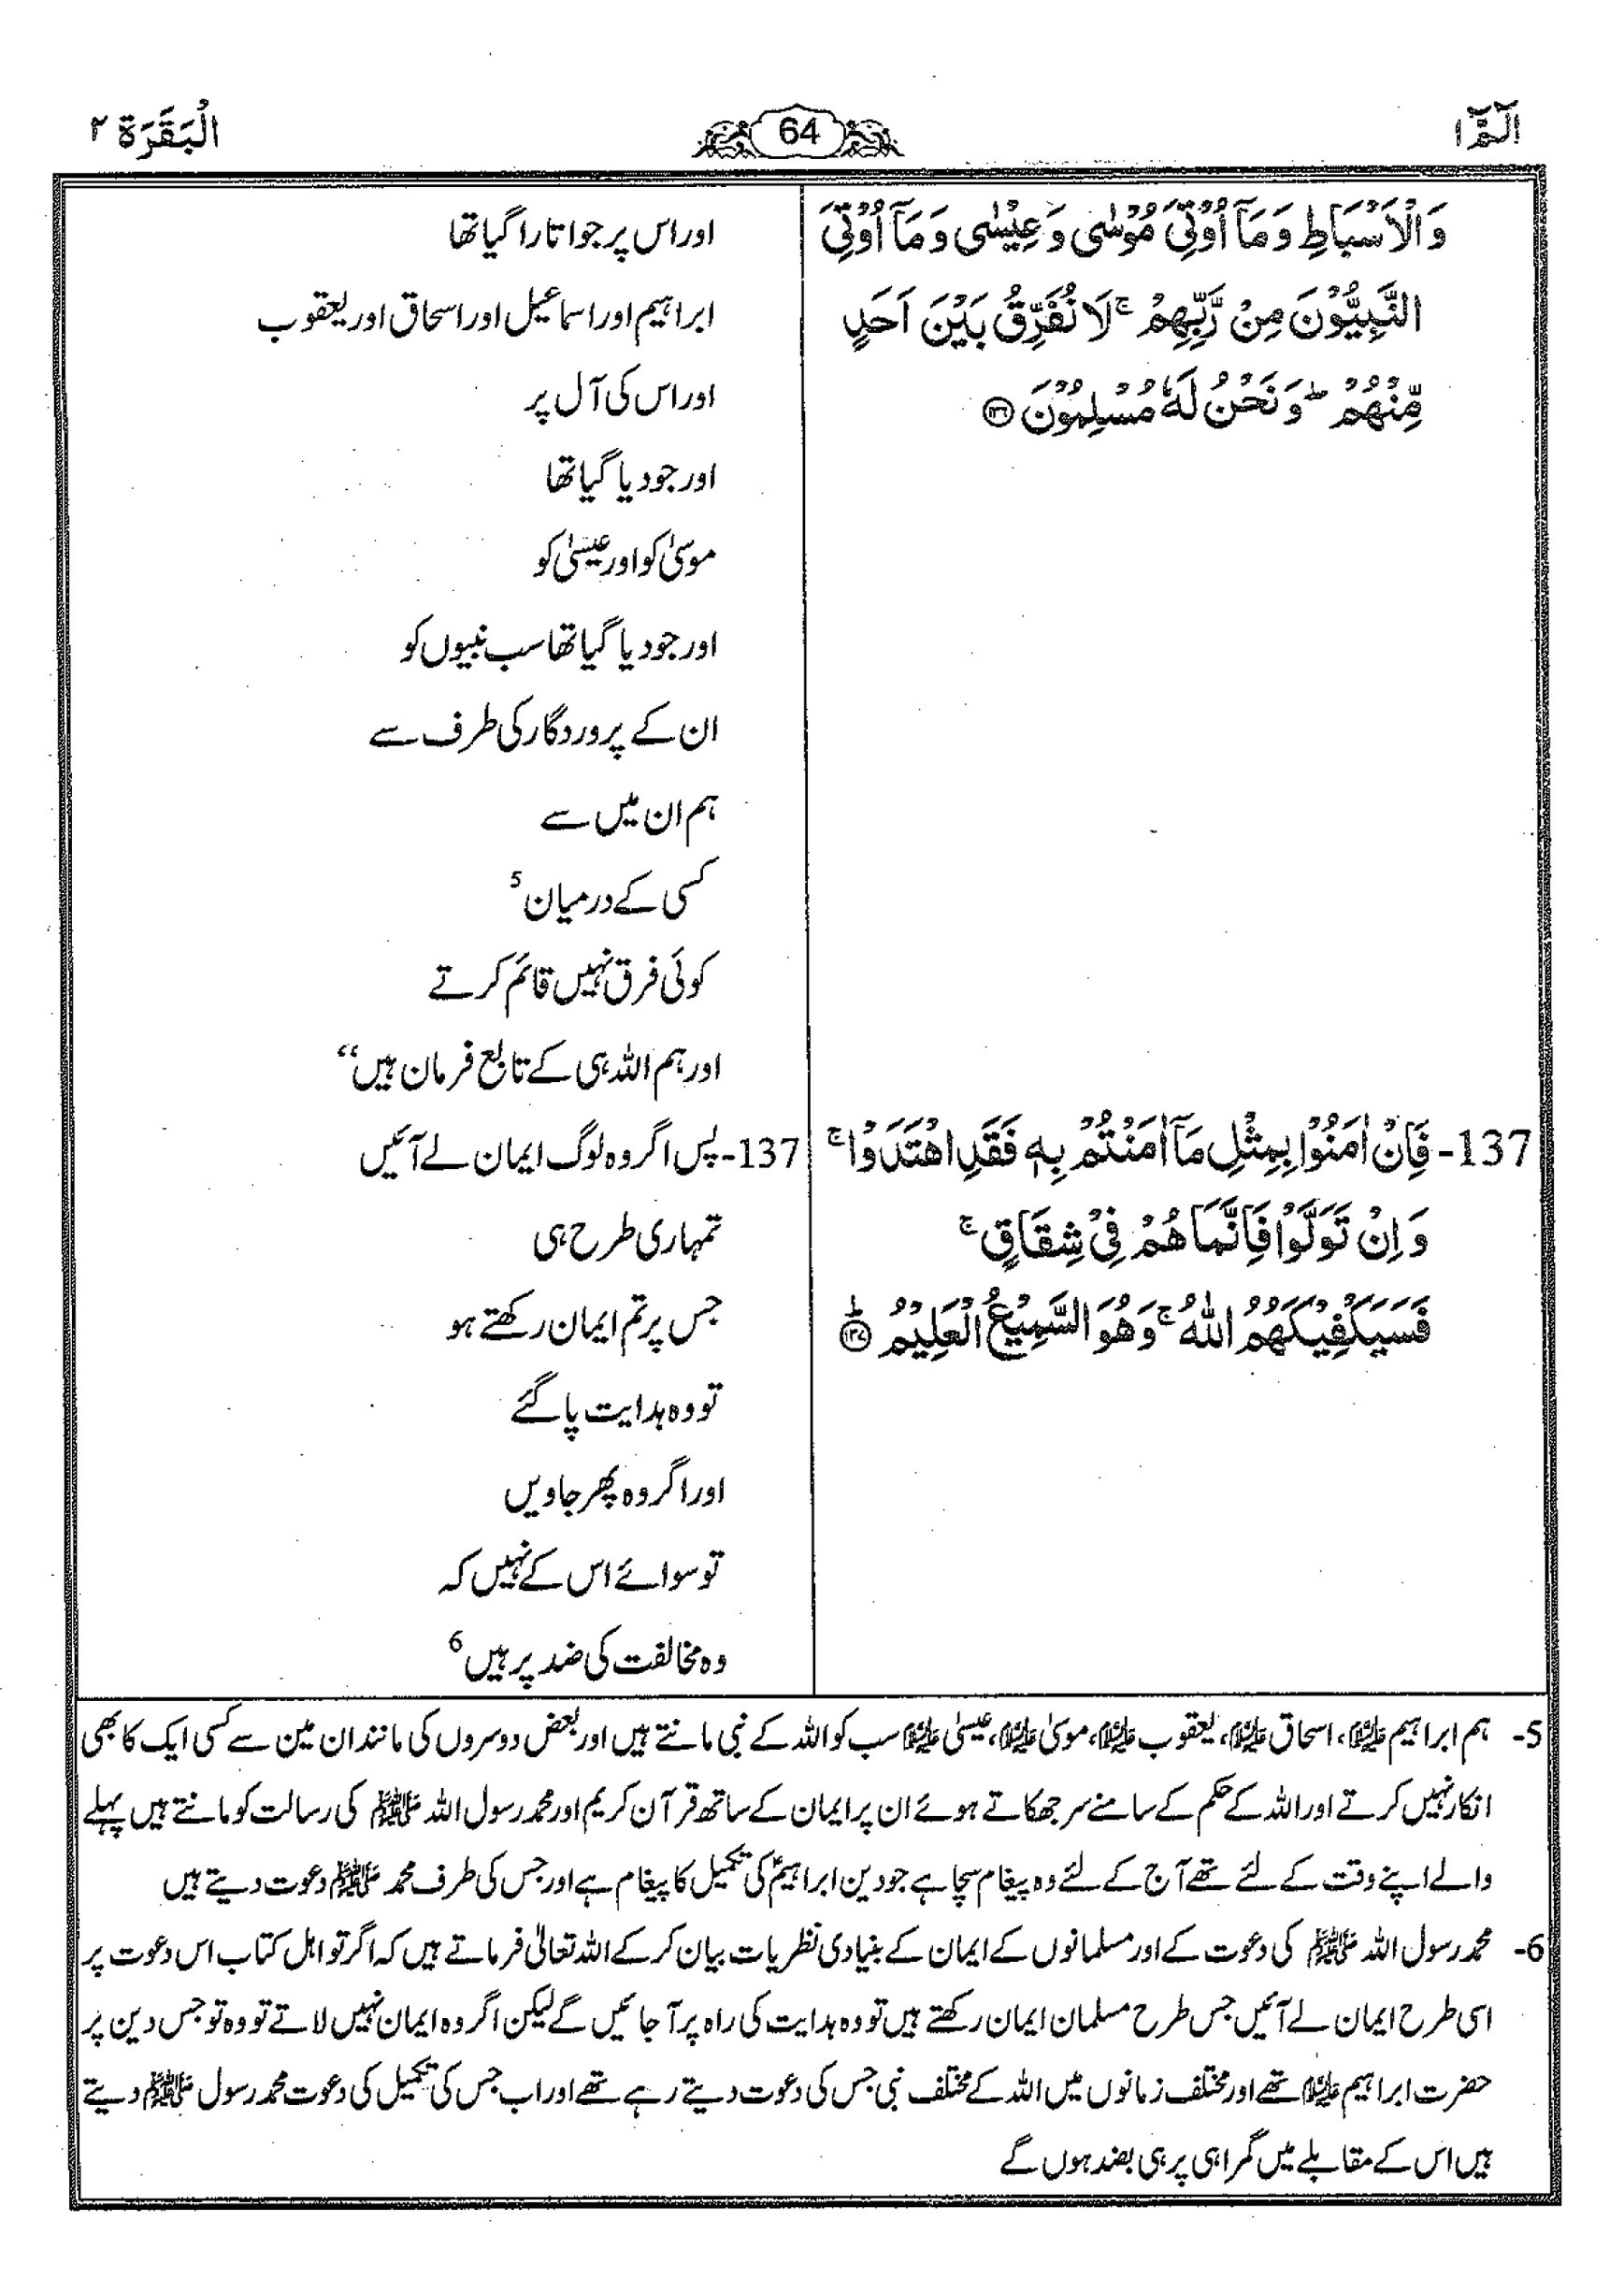 الٓمّٓ ١
64
الْبَقَرَة ٢
وَالْاَسْبَاطِ وَمَآ اُوْتِیَ مُوْسٰی وَعِیْسٰی وَمَآ اُوْتِیَ
النَّبِیُّوْنَ مِنْ رَّبِّهِمْ ۚ لَا نُفَرِّقُ بَیْنَ اَحَدٍ
مِّنْهُمْ ؗ وَنَحْنُ لَهٗ مُسْلِمُوْنَ ۝۱۳۶
137- فَاِنْ اٰمَنُوْا بِمِثْلِ مَآ اٰمَنْتُمْ بِهٖ فَقَدِ اهْتَدَوْا ۚ
وَ اِنْ تَوَلَّوْا فَاِنَّمَا هُمْ فِیْ شِقَاقٍ ۚ
فَسَیَكْفِیْكَهُمُ اللّٰهُ ۚ وَهُوَ السَّمِیْعُ الْعَلِیْمُ ۝۱۳۷ؕ
اور اس پر جو اتارا گیا تھا
ابراہیم اور اسماعیل اور اسحاق اور یعقوب
اور اس کی آل پر
اور جو دیا گیا تھا
موسیٰ کو اور عیسیٰ کو
اور جو دیا گیا تھا سب نبیوں کو
ان کے پروردگار کی طرف سے
ہم ان میں سے
کسی کے درمیان 5
کوئی فرق نہیں قائم کرتے
اور ہم اللہ ہی کے تابع فرمان ہیں“
137- پس اگر وہ لوگ ایمان لے آئیں
تمہاری طرح ہی
جس پر تم ایمان رکھتے ہو
تو وہ ہدایت پا گئے
اور اگر وہ پھر جاویں
تو سوائے اس کے نہیں کہ
وہ مخالفت کی ضد پر ہیں 6
5- ہم ابراہیم علیہ السلام، اسحاق علیہ السلام، یعقوب علیہ السلام، موسیٰ علیہ السلام، عیسیٰ علیہ السلام سب کو اللہ کے نبی مانتے ہیں اور بعض دوسروں کی مانند ان مین سے کسی ایک کا بھی
انکار نہیں کرتے اور اللہ کے حکم کے سامنے سر جھکاتے ہوئے ان پر ایمان کے ساتھ قرآن کریم اور محمد رسول اللہ ﷺ کی رسالت کو مانتے ہیں پہلے
والے اپنے وقت کے لئے تھے آج کے لئے وہ پیغام سچا ہے جو دین ابراہیمؑ کی تکمیل کا پیغام ہے اور جس کی طرف محمد ﷺ دعوت دیتے ہیں
6- محمد رسول اللہ ﷺ کی دعوت کے اور مسلمانوں کے ایمان کے بنیادی نظریات بیان کر کے اللہ تعالیٰ فرماتے ہیں کہ اگر تو اہل کتاب اس دعوت پر
اسی طرح ایمان لے آئیں جس طرح مسلمان ایمان رکھتے ہیں تو وہ ہدایت کی راہ پر آ جائیں گے لیکن اگر وہ ایمان نہیں لاتے تو وہ تو جس دین پر
حضرت ابراہیم علیہ السلام تھے اور مختلف زمانوں میں اللہ کے مختلف نبی جس کی دعوت دیتے رہے تھے اور اب جس کی تکمیل کی دعوت محمد رسول ﷺ دیتے
ہیں اس کے مقابلے میں گمراہی پر ہی بضد ہوں گے